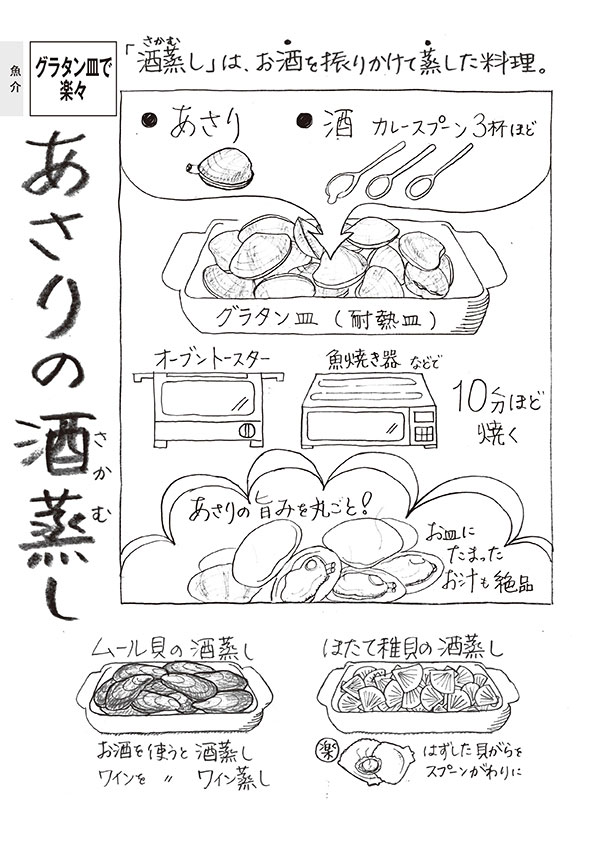 魚介
グラタン皿で
楽々
あさりの酒蒸し
さかむ
さかむ
「酒蒸し」は、お酒を振りかけて蒸した料理。
● あさり
● 酒 カレースプーン3杯ほど
グラタン皿(耐熱皿)
オーブントースター
魚焼き器 などで
10分ほど
焼く
あさりの旨みを丸ごと!
お皿に
たまった
お汁も絶品
ムール貝の酒蒸し
お酒を使うと酒蒸し
ワインを 〃 ワイン蒸し
ほたて稚貝の酒蒸し
楽 はずした貝がらを
スプーンがわりに